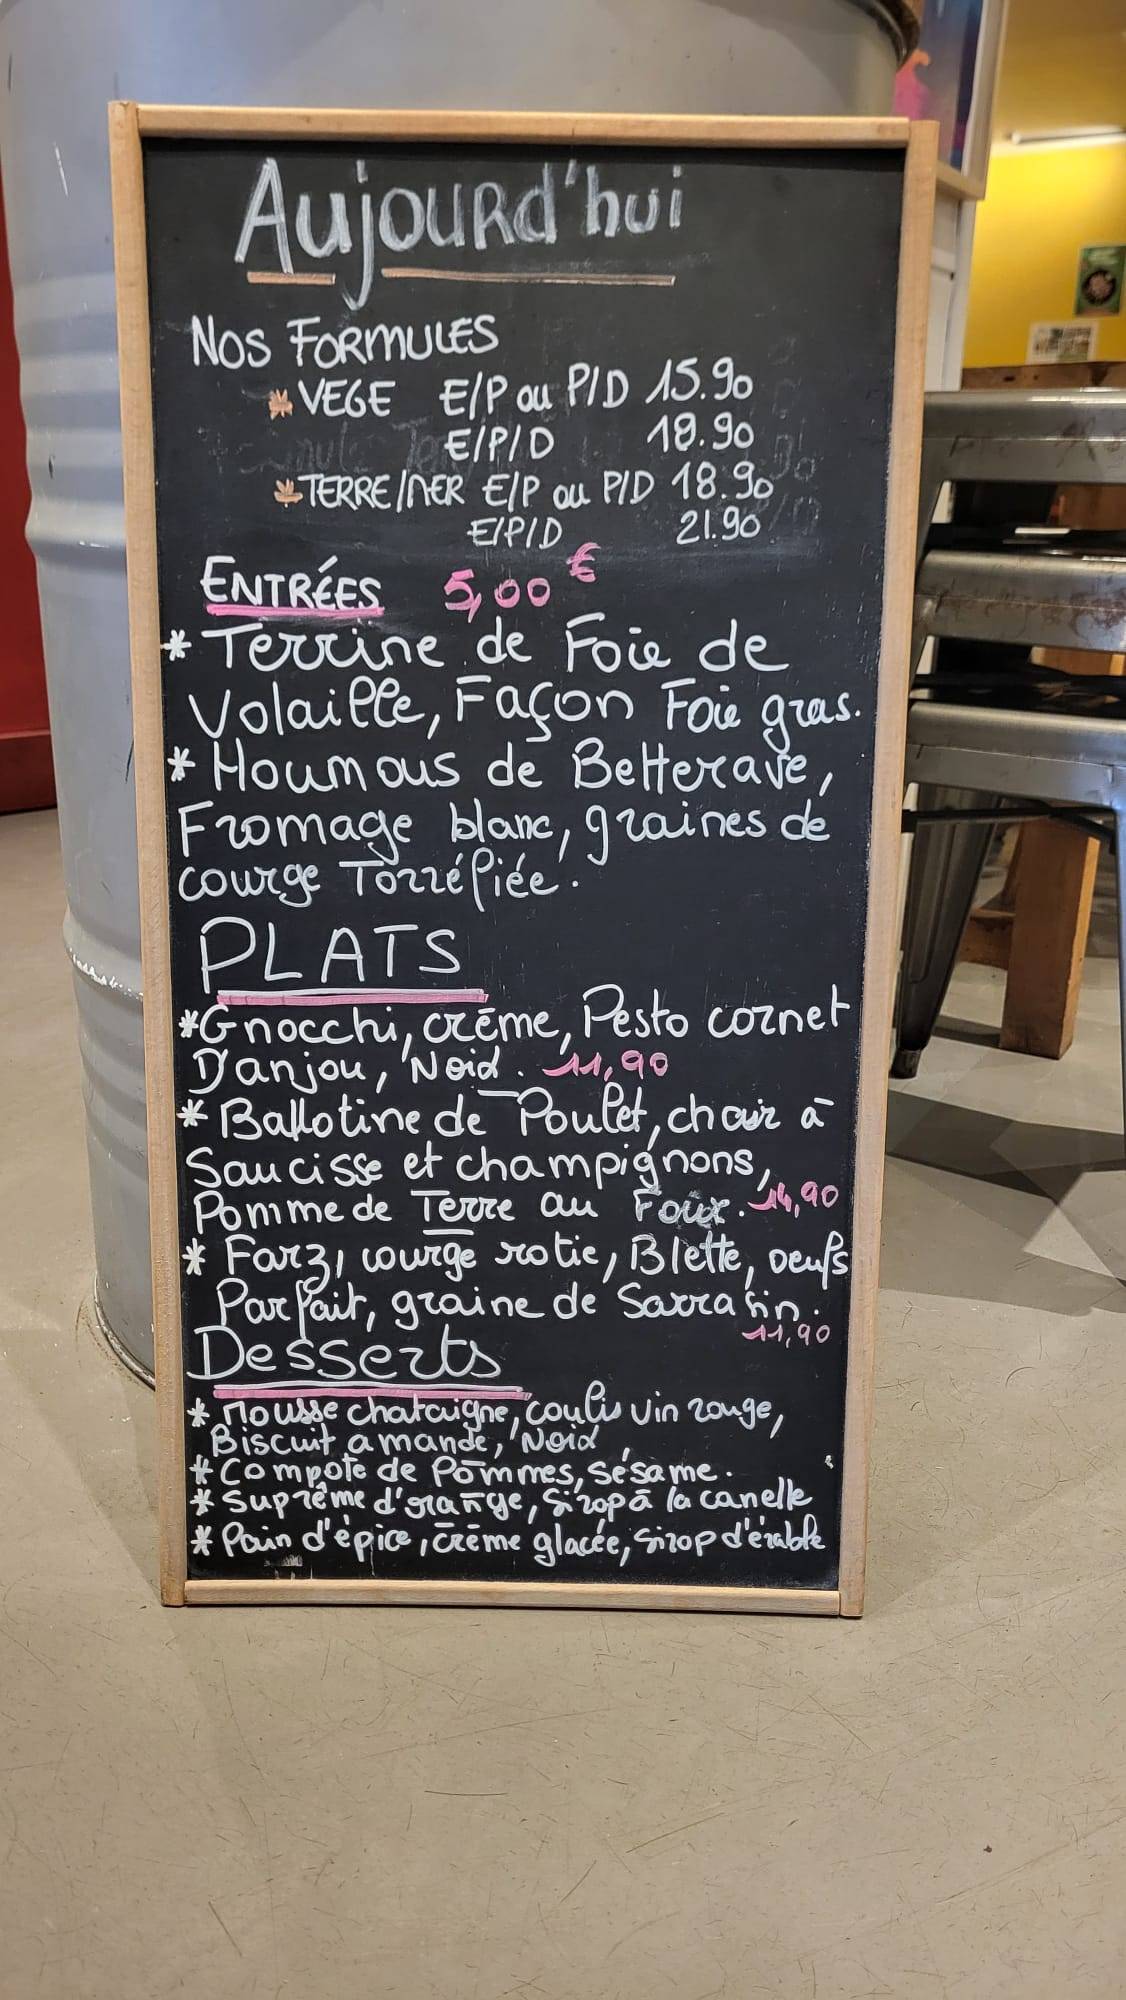 Aujourd'hui
NOS FORMULES
* VEGE E/P ou P/D 15.90
E/P/D 18.90
* TERRE/MER E/P ou P/D 18.90
E/P/D 21.90
ENTRÉES 5,00 €
* Terrine de Foie de
Volaille, Façon Foie gras.
* Houmous de Betterave,
Fromage blanc, graines de
courge Torréfiée.
PLATS
* Gnocchi, crème, Pesto cornet
D'anjou, Noix. 11,90
* Ballotine de Poulet, chair à
Saucisse et champignons,
Pomme de Terre au Four. 14,90
* Farz, courge rotie, Blette, oeufs
Parfait, graine de Sarrasin.
11,90
Desserts
* Mousse chataigne, coulis vin rouge,
Biscuit amande, Noix
* Compote de Pommes, Sésame.
* Suprême d'orange, Sirop à la canelle
* Pain d'épice, crème glacée, Sirop d'érable